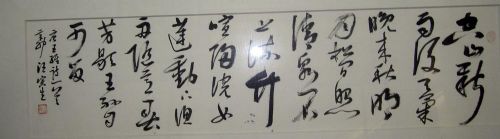 空山新
雨後天氣
晚來秋明
月松間照
清泉石
上流竹
喧歸浣女
蓮動下漁
舟隨意春
芳歇王孫自
可留
王維詩